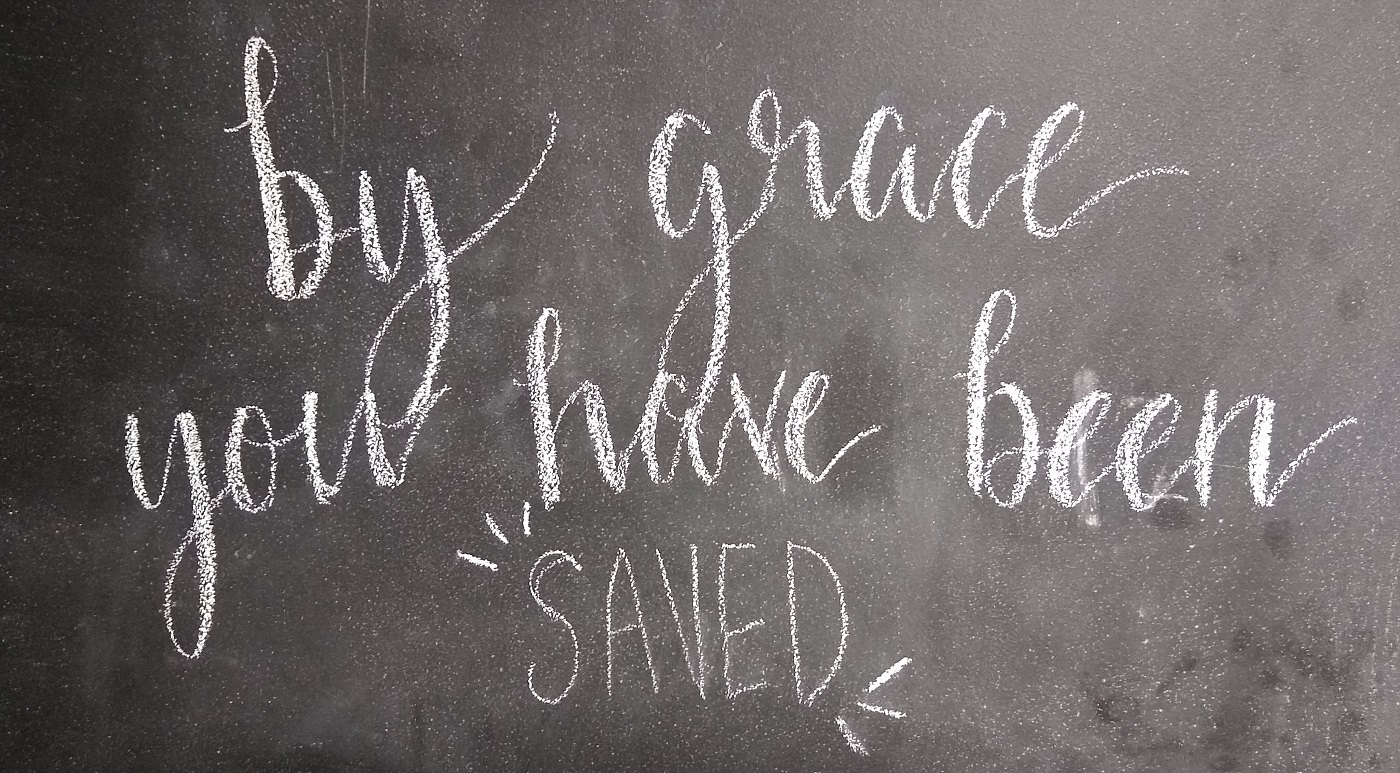 by grace
you have been
SAVED